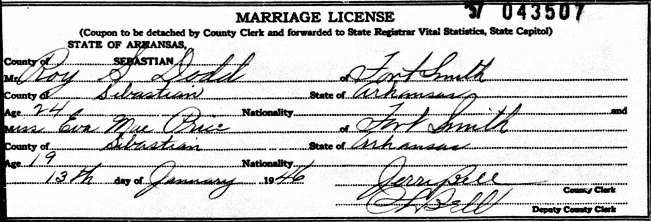 MARRIAGE LICENSE 57 043507
(Coupon to be detached by County Clerk and forwarded to State Registrar Vital Statistics, State Capitol)
STATE OF ARKANSAS,
County of SEBASTIAN
Mr. Roy S Dodd of Fort Smith
County of Sebastian State of Arkansas
Age 24 Nationality and
Miss Eva Mae Price of Fort Smith
County of Sebastian State of Arkansas
Age 19 Nationality
13th day of January 1946
Jerri Bell County Clerk
Bell Deputy County Clerk